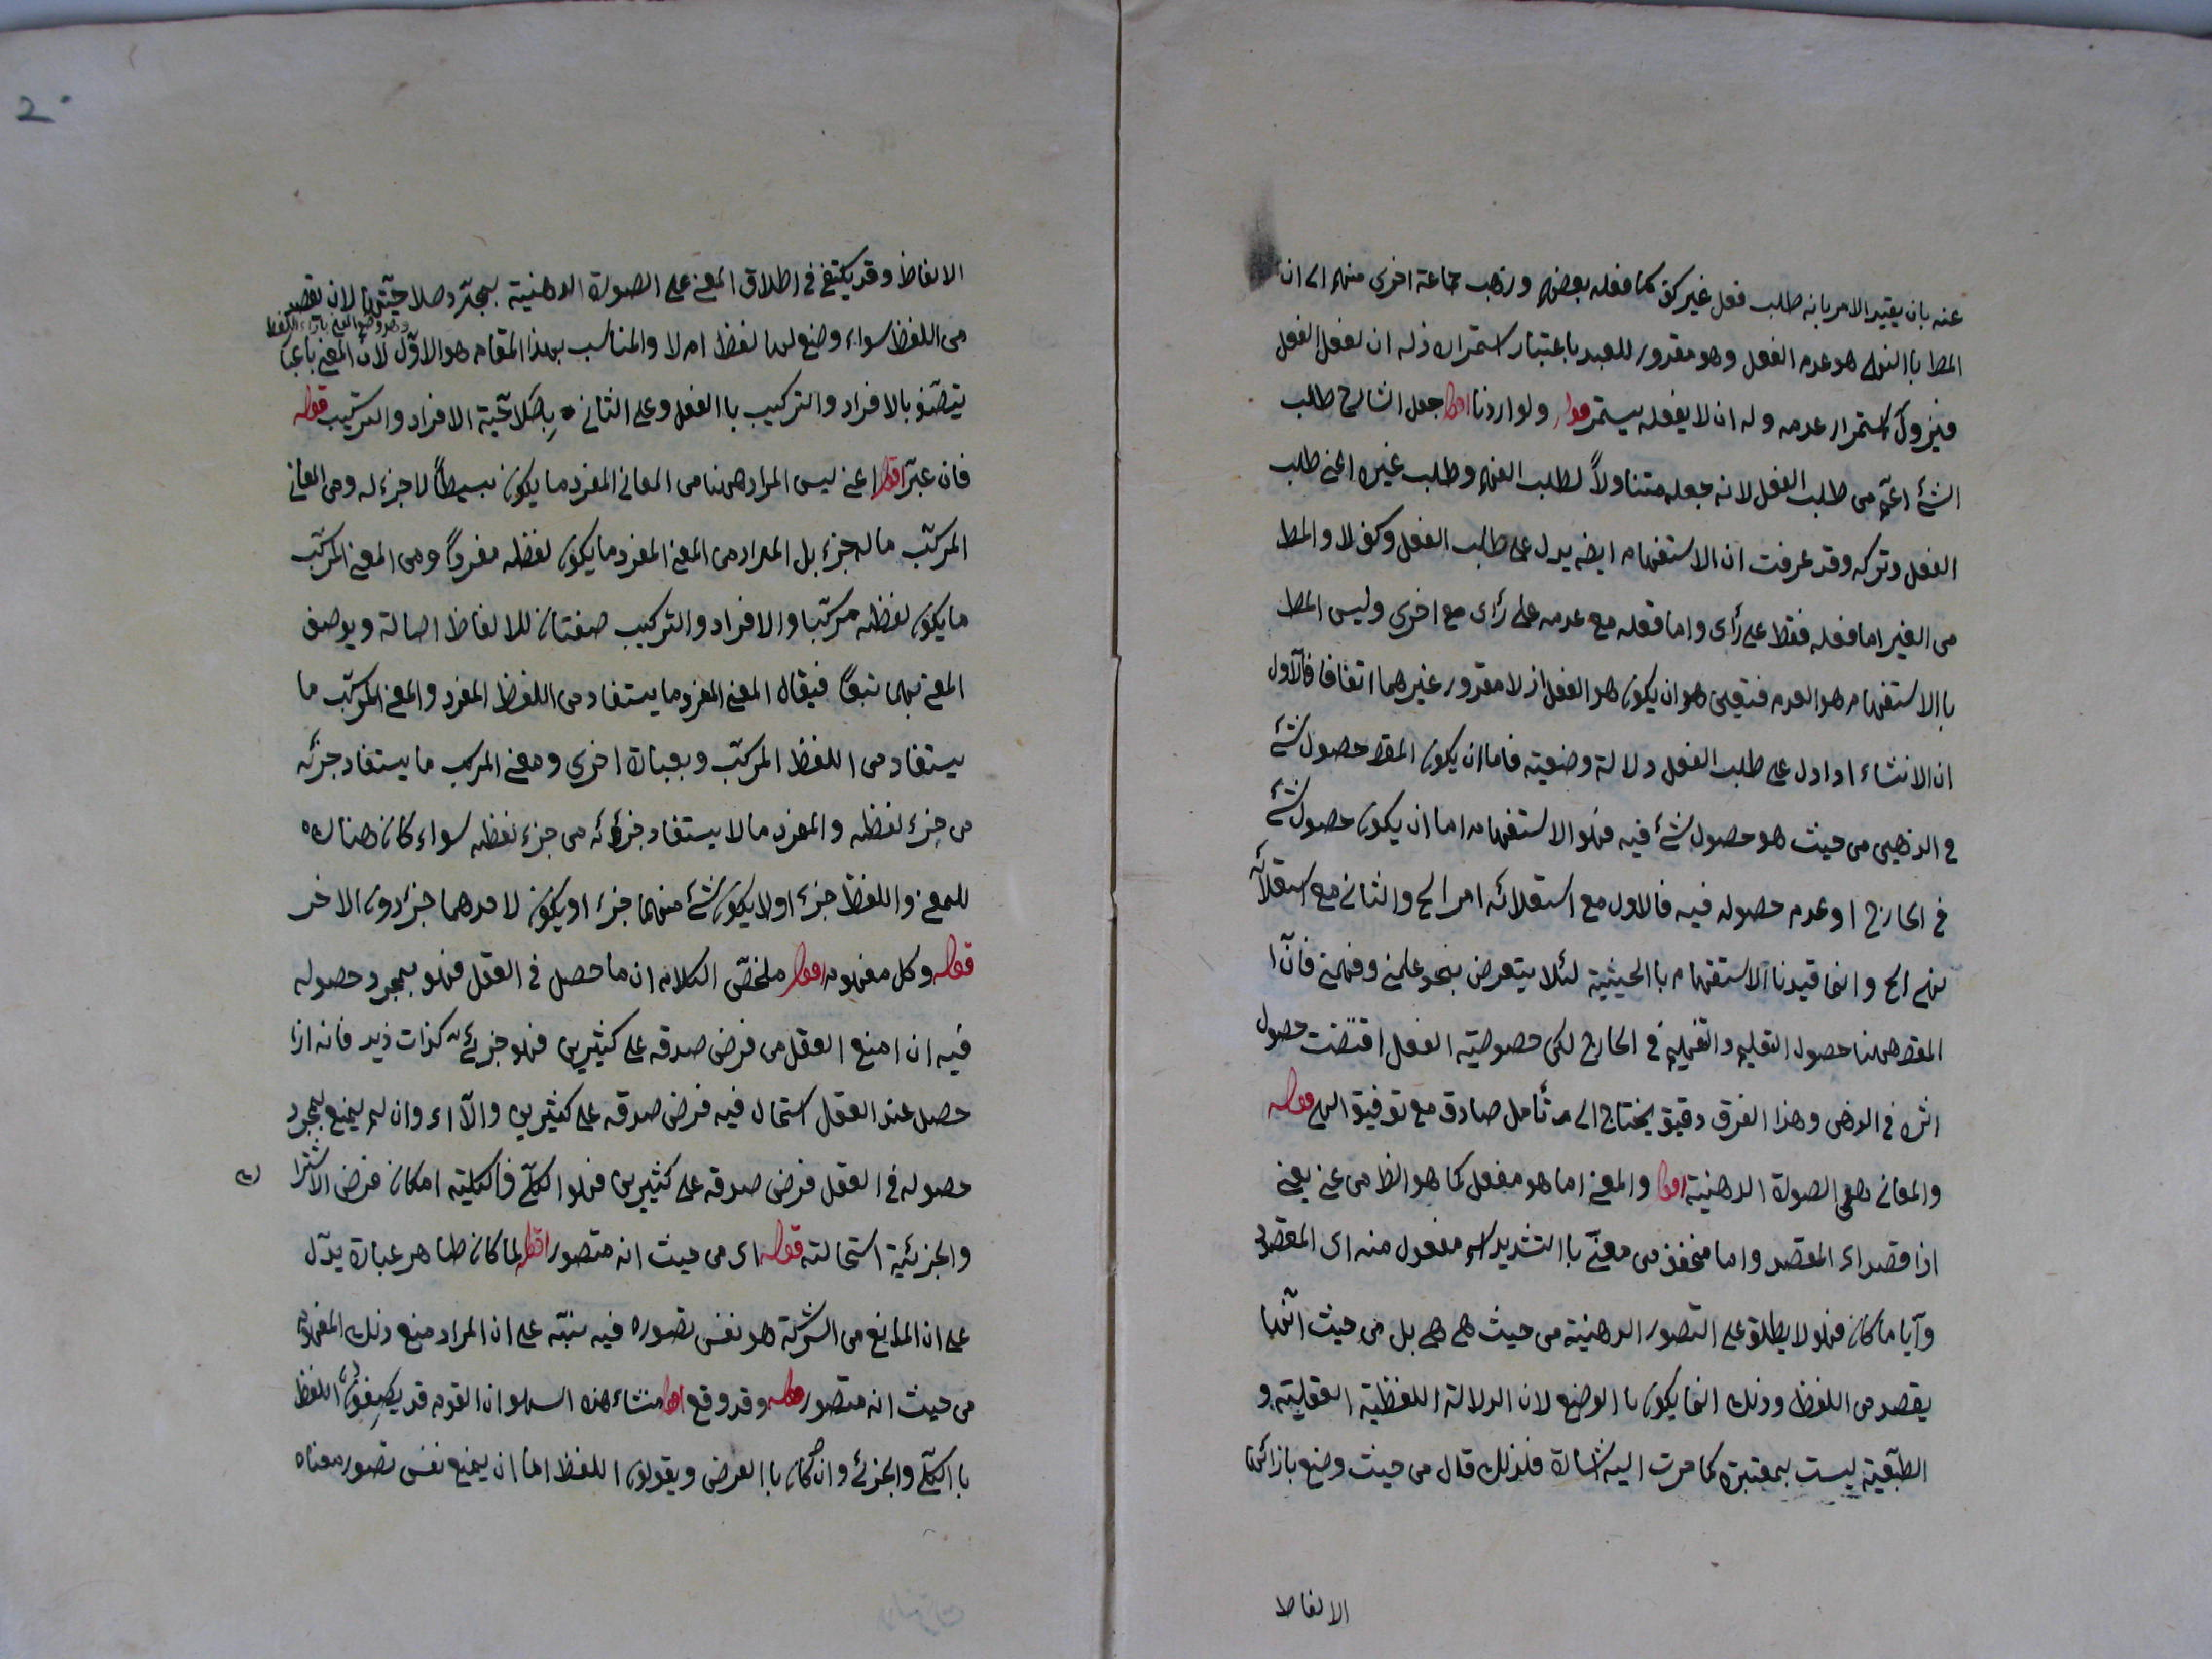 عنه بان يقيد الامر بانه طلب فعل غير كف كما فعله بعضهم وذهب جماعة اخرى منهم الى ان
المط باالنهى هو عدم الفعل وهو مقدور للعبد باعتبار استمراره اذ له ان يفعل الفعل
فيزول استمرار عدمه وله ان لا يفعله فيستمر قوله ولو اردنا اقول جعل الشارح طلب
الشئ اعم من طلب الفعل لانه جعله متناولاً لطلب الفهم وطلب غيره اعنى طلب
الفعل وتركه وقد عرفت ان الاستفهام ايضه يدل على طلب الفعل وكف لا والمط
من الغير اما فعله فقط على رأى واما فعله مع عدمه على رأى مع اخرى وليس المط
باالاستفهام هو العدم فتعين هو ان يكون هو الفعل اذ لا مقدور غيرهما اتفاقا فآلاول
ان الانشاء اذا دل على طلب الفعل دلالة وضعية فاما ان يكون المقص حصول شئ
فى الذهن من حيث هو حصول شئ فيه فهو الاستفهام اما ان يكون حصول شئ
فى الخارج او عدم حصوله فيه فالاول مع استعلائه امر الح والثانى مع استعلائه
نهى الح وانما قيدنا الاستفهام باالحيثية لئلا يتعرض بنحو علمنى وفهمنى فان
المقص ههنا حصول التعليم والتفهيم فى الخارج لكن خصوصية الفعل اقتضت حصول
اثره فى الذهن وهذا الفرق دقيق يحتاج الى تأمل صادق مع توفيق الهى قوله
والمعانى هى الصورة الذهنية اقول والمعنى اما هو مفعل كما هو الظ من عنى يعنى
اذا قصد اى المقصد واما مخفف من معنىّ باالتشديد اسم مفعول منه اى المقصود
وآيا ما كان فهو لا يطلق على التصور الذهنية من حيث هى هى بل من حيث انها
يقصد من اللفظ وذلك انما يكون باالوضع لان الدلالة اللفظية العقلية و
الطبعية ليست بمعتبرة كما مرت اليه اشارة فلذلك قال من حيث وضع بازائها
الالفاظ
2
الالفاظ وقد يكتفى فى اطلاق المعنى على الصورة الذهنية بمجرد صلاحيتها لان تقصد
وهو وضع المعنى بازاء اللفظ
من اللفظ سواء وضع لها لفظ ام لا والمناسب بهذا المقام هو الاول لان المعنى باعتبا
يتصف بالافراد والتركيب باالفعل وعلى الثانى بصلاحية الافراد والتركيب قوله
فان عبّر اقول اعنى ليس المراد ههنا من المعانى المفرد ما يكون بسيطاً لا جزء له ومن المعانى
المركب ما له جزء بل المراد من المعنى المفرد ما يكون لفظه مفرداً ومن المعنى المركب
ما يكون لفظه مركبا والافراد والتركيب صفتان للالفاظ اصالة ويوصف
المعنى بهما تبعاً فيقال المعنى المفرد ما يستفاد من اللفظ المفرد والمعنى المركب ما
يستفاد من اللفظ المركب وبعبارة اخرى ومعنى المركب ما يستفاد جزئه
من جزء لفظه والمفرد ما لا يستفاد جزئه من جزء لفظه سواء كان هناك
للمعنى واللفظ جزء او لا يكون شئ منهما جزء او يكون لاحدهما جزء دون الاخر
قوله وكل مفهوم اقول ملخص الكلام ان ما حصل فى العقل فهو بمجرد حصوله
فيه ان امنع العقل من فرض صدقه على كثيرين فهو جزئى كذات زيد فانه اذا
حصل عند العقل استحال فيه فرض صدقه على كثيرين والآ اى وان لم يمنع بمجرد
حصوله فى العقل فرض صدقه على كثيرين فهو الكلّى فالكلية امكان فرض الاشترا
ك
والجزئية استحالته قوله اى من حيث انه متصور اقول لما كان ظاهر عبارة يدل
على ان المانع من الشركة هو نفس تصوره فيه نبّه على ان المراد منع ذلك المفهوم
من حيث انه متصور قوله وقد وقع اقول منشاء هذه السهو ان القوم قد يصفون اللفظ
باالكلّى والجزئى وان كان باالعرض ويقولون اللفظ اما ان يمنع نفس تصور معناه